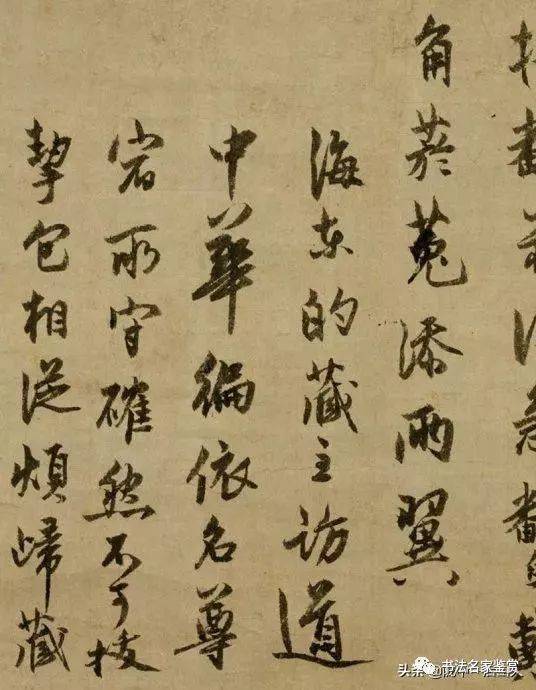 角菸菟添兩翼
海東的藏主訪道
中華徧依名尊
宿所守確然不可拔
挈包相從煩歸藏
书法名家鉴赏
头条